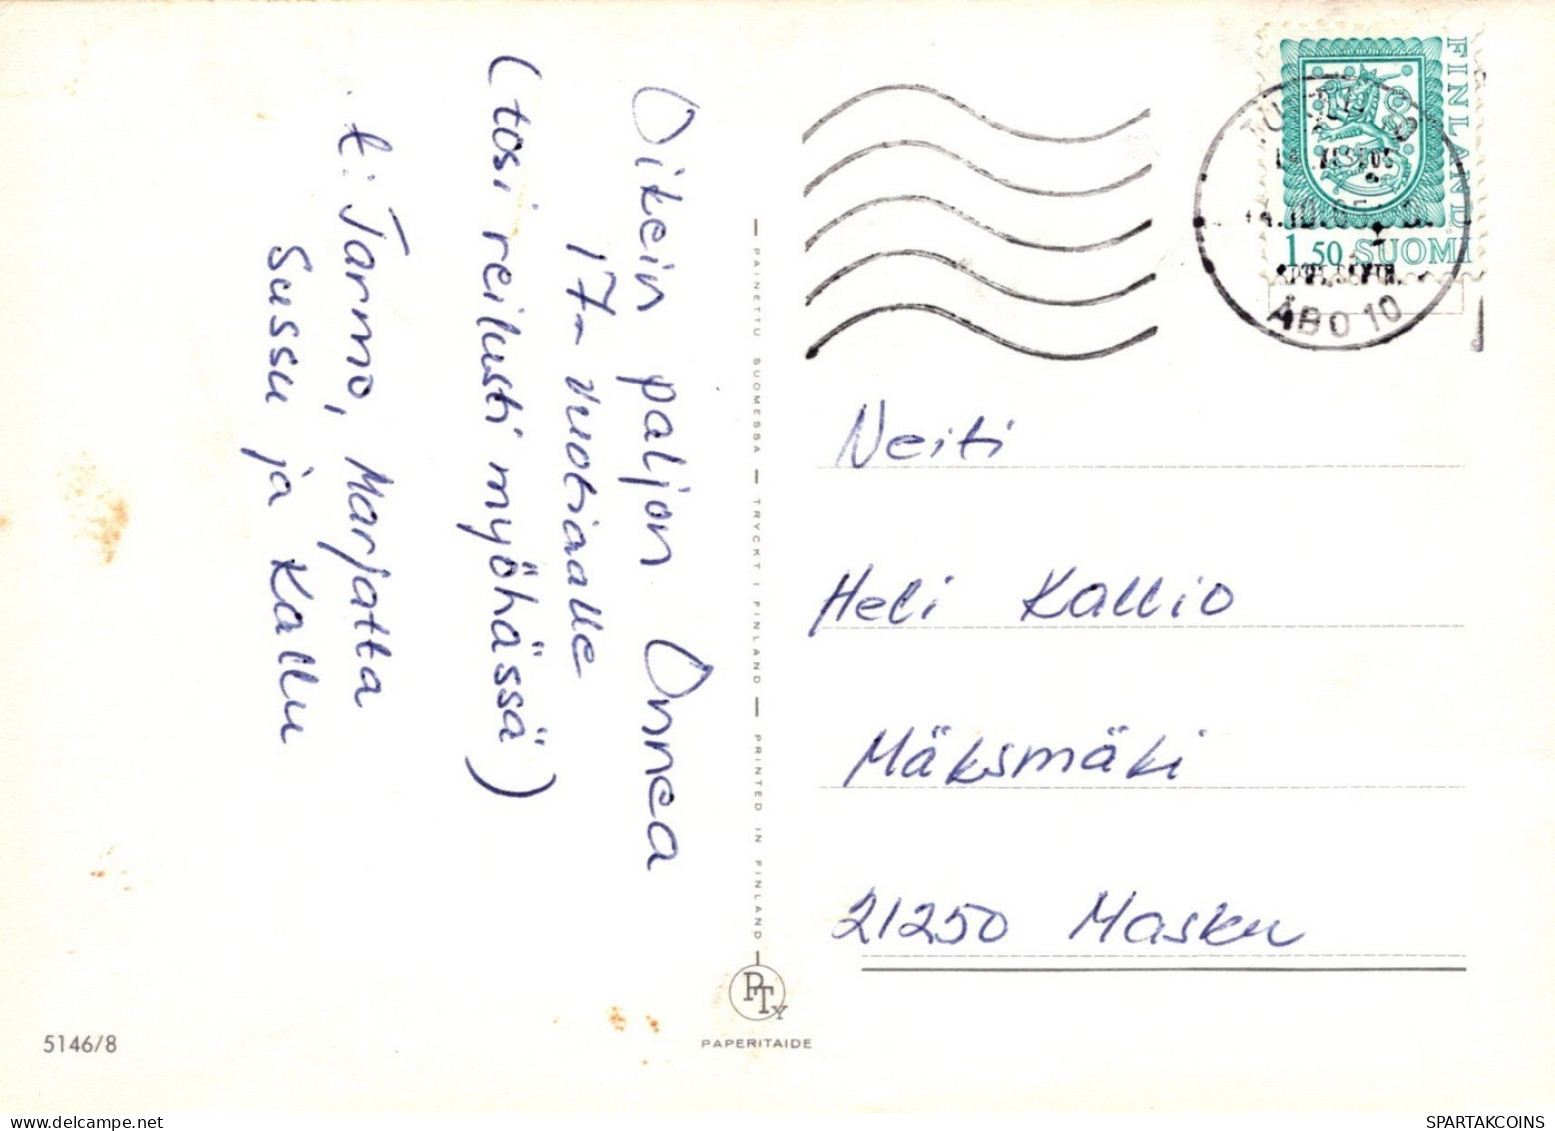 Oikein paljon Onnea
17-vuotiaalle
(tosi reilusti myöhässä)
t: Tarmo, Marjatta
Sussu ja Kallu
PAINETTU SUOMESSA — TRYCKT I FINLAND — PRINTED IN FINLAND
PTY
PAPERITAIDE
5146/8
FINLAND
1,50 SUOMI
ÅBO 10
Neiti
Heli Kallio
Mäksmäki
21250 Masku
www.delcampe.net
SPARTAKCOINS